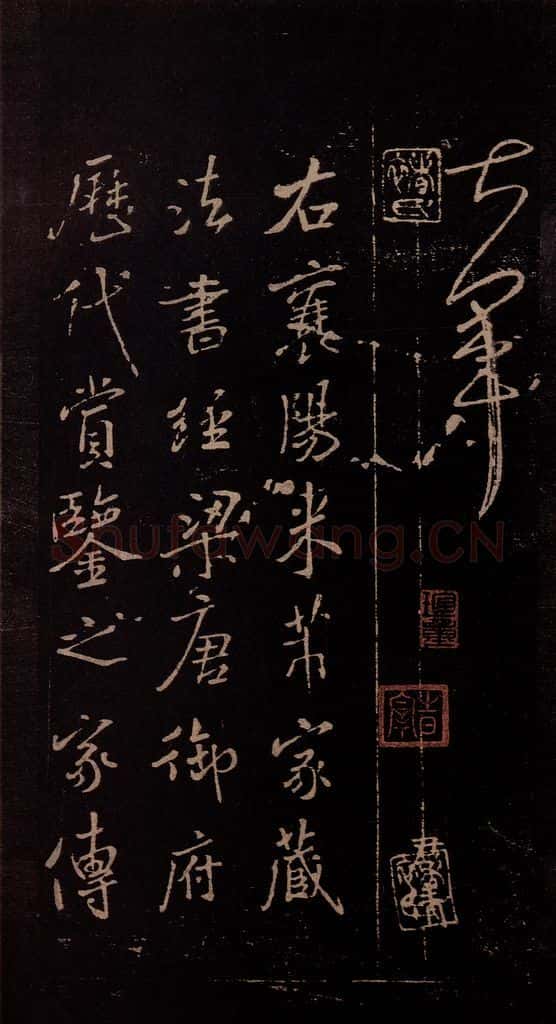 右襄陽米芾家藏
法書經梁唐御府
歷代賞鑒之家傳
Shufawang.CN